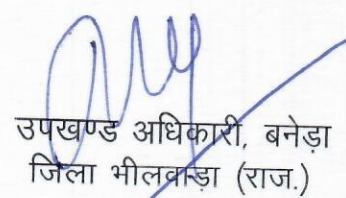 उपखण्ड अधिकारी, बनेड़ा
जिला भीलवाड़ा (राज.)